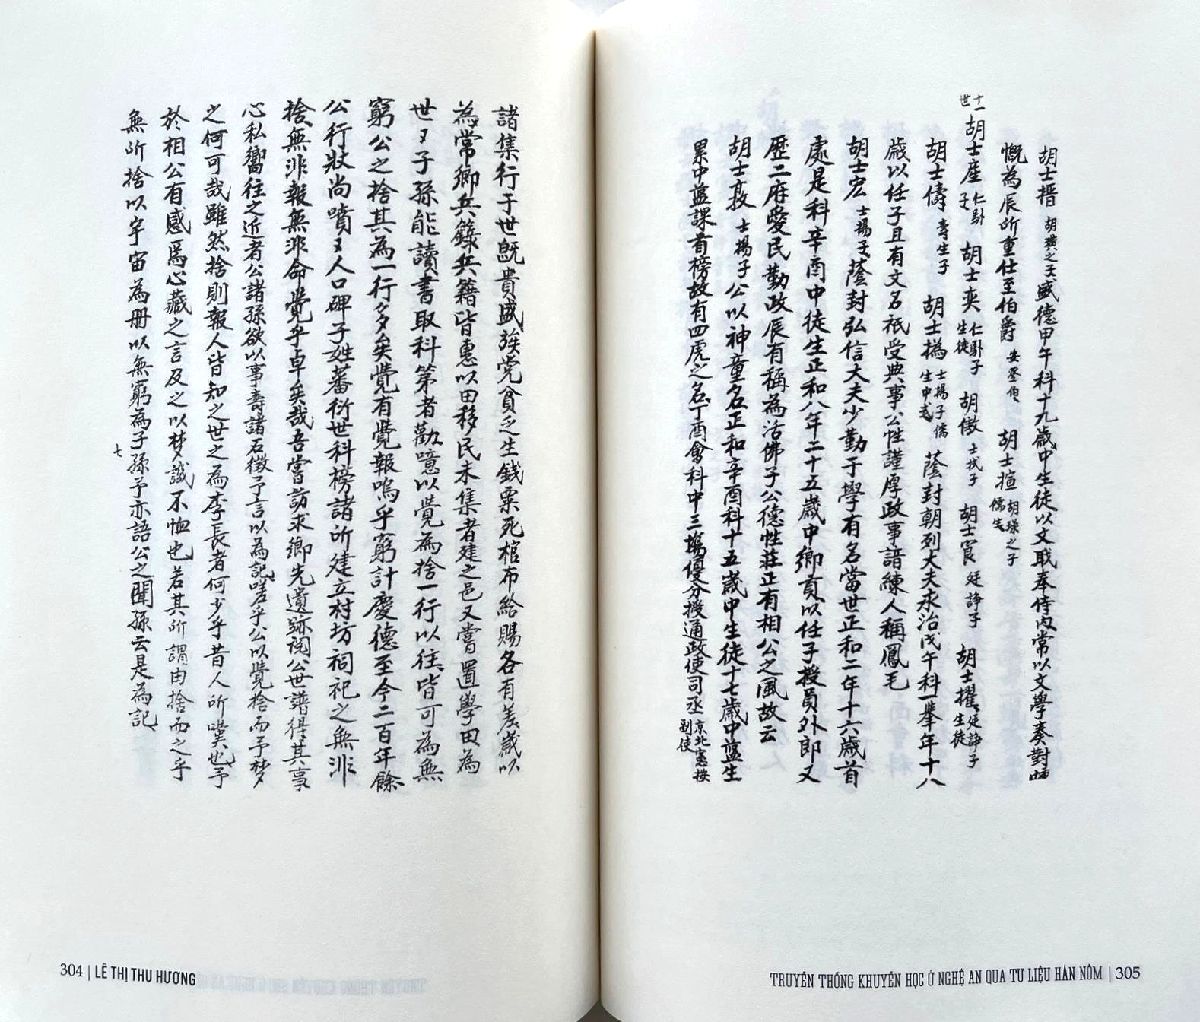 諸集行于世既貴盛族党貧乏生錢粟死棺布給賜各有差歲以
為常鄉兵籙兵籍皆惠以田移民未集者建之邑又嘗置學田為
世〻子孫能讀書取科第者勸噫以覺為捨一行以往皆可為無
窮公之捨其為一行多矣覺有覺報嗚乎窮計慶德至今二百年餘
公行狀尚嘖〻人口碑子姓蕃衍世科榜諸所建立村坊祠祀之無非
捨無非報無非命覺乎卓矣哉吾嘗訪求鄉先遺跡閱公世譜得其事
心私嚮往之近者公諸孫欲以事壽諸石徵予言以為記嗟乎公以覺捨而予梦
之何可哉雖然捨則報人皆知之世之為李長者何少乎昔人所嘆也予
於相公有感焉心藏之言及之以梦誠不恤也若其所謂由捨而之乎
無所捨以宇宙為冊以無窮為子孫予亦語公之聞孫云是為記
七
304 | LÊ THỊ THU HƯƠNG
胡士搢 胡璜之子 盛德甲午科十九歲中生徒以文職奉侍內常以文學奏對
慨為辰所重仕至伯爵 胡士 之子 儒生
十一世 胡士 子 胡士奕 仁 子生徒 胡 子 胡士 廷諍子 胡士擢 廷諍子生徒
胡士儔 壽生子 胡士 士揚子儒生中式 蔭封朝列大夫永治戊午科舉年十八
歲以任子且有文名祇受典事公性謹厚政事諳練人稱鳳毛
胡士宏 士揚子 蔭封弘信大夫少勤于學有名當世正和二年十六歲首
處是科辛酉中徒生正和八年二十五歲中鄉貢以任子授員外郎又
歷二府愛民勤政辰有稱為活佛子公德性莊正有相公之風故云
胡士 士揚子 公以神童名正和辛酉科十五歲中生徒十七歲中監生
累中監課首榜故有四虎之名丁酉會科中三場優分授通政使司丞 京北憲按副使
TRUYỀN THỐNG KHUYẾN HỌC Ở NGHỆ AN QUA TƯ LIỆU HÁN NÔM | 305